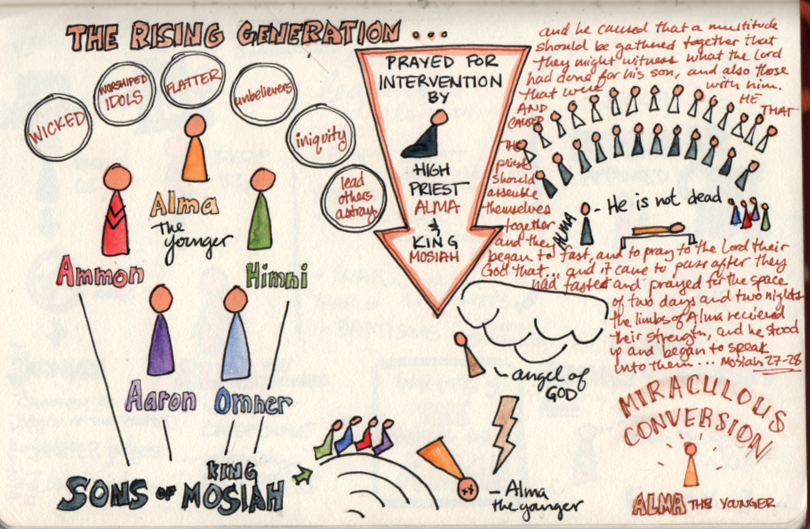 THE RISING GENERATION ...
WICKED
WORSHIPED
IDOLS
FLATTER
unbelievers
iniquity
lead
others
astray
Alma
the
younger
Ammon
Himni
Aaron
Omner
SONS OF KING
MOSIAH
PRAYED FOR
INTERVENTION
BY
HIGH
PRIEST
ALMA
&
KING
MOSIAH
angel of
GOD
- Alma
the younger
and he caused that a multitude
should be gathered together that
they might witness what the Lord
had done for his son, and also those
that were with him.
AND HE THAT
CAUSED
THE
priests
should
assemble
themselves
together
and they
ALMA
- He is not dead
began to fast, and to pray to the Lord their
God that... and it came to pass after they
had fasted and prayed for the space
of two days and two nights
the limbs of Alma recieved
their strength, and he stood
up and began to speak
unto them.... - Mosiah 27-28
MIRACULOUS
CONVERSION
ALMA THE YOUNGER